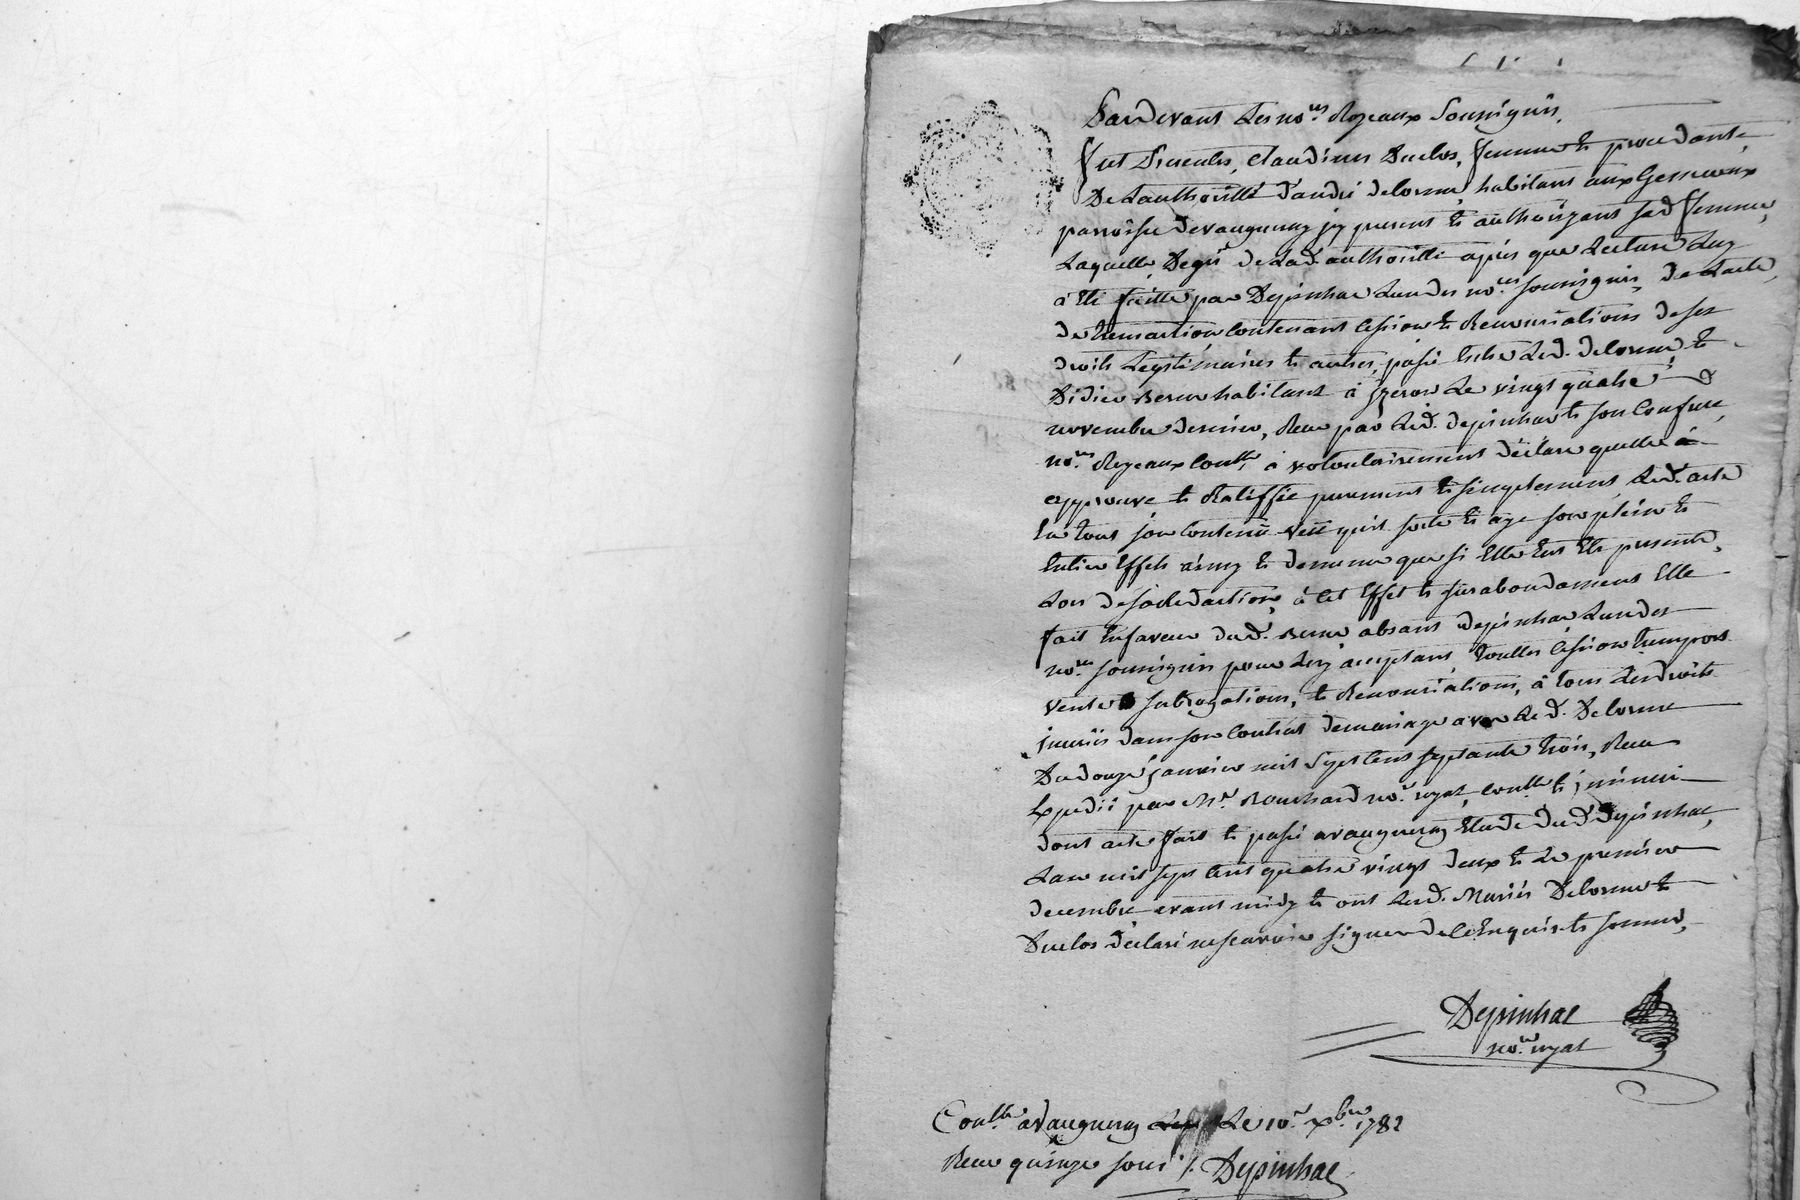 Pardevant Les no.res Royaux Soussignés,
fut presente, Claudine Duclos, femme et procedante
De Lauthorité d'andré delorme, habitant aux
parroisse devaugneray jcy present et authorizant sad. femme,
Laquelle Degré De Lad. authorité apres que Lecture Luy
à Eté faitte par Depinhac Lun des no.res soussignés, De Lacte
de transaction Contenant Cession et Renonciations de ses
droits Legitimaires et autres, passé Entre Led. delorme et
Didier Berne habitant à jzeron Le vingt quatre
novembre dernier, Reçu par Led. depinhac et son Confrere
no.res Royaux Contllé, à volontairement déclaré quelle à
approuve et Ratiffie purement et simplement Led. acte
En tout son Contenu veut quil sorte et aye son plein et
Entier Effet ainsy et de meme que si Elle Eut Eté presente
Lors de sa Redaction, à Cet Effet et surabondament Elle
fait En faveur dud. Berne absant Depinhac Lun des
no.res soussignés pour Luy acceptant, touttes Cession transport
vente subrogations, et Renonciations, à tous Les droits
jnserés dans son Contrat de mariage avec Led. Delorme
Du douze janvier mil sept Cent septante trois, Reçu
Expedié par Mr. Bouchard no.re royal, Contllé et jnsinué
dont acte fait et passé a vaugneray Etude dud. Depinhac,
Lan mil sept Cent quatre vingt deux et Le premier
decembre avant midy et ont Lesd. Mariés Delorme et
Duclos déclaré ne scavoir signer de ce Enquis et sommé,
Depinhac
no.re royal
Contllé a vaugneray Le 10.e xbre 1782
Reçu quinze sous ./. Depinhac